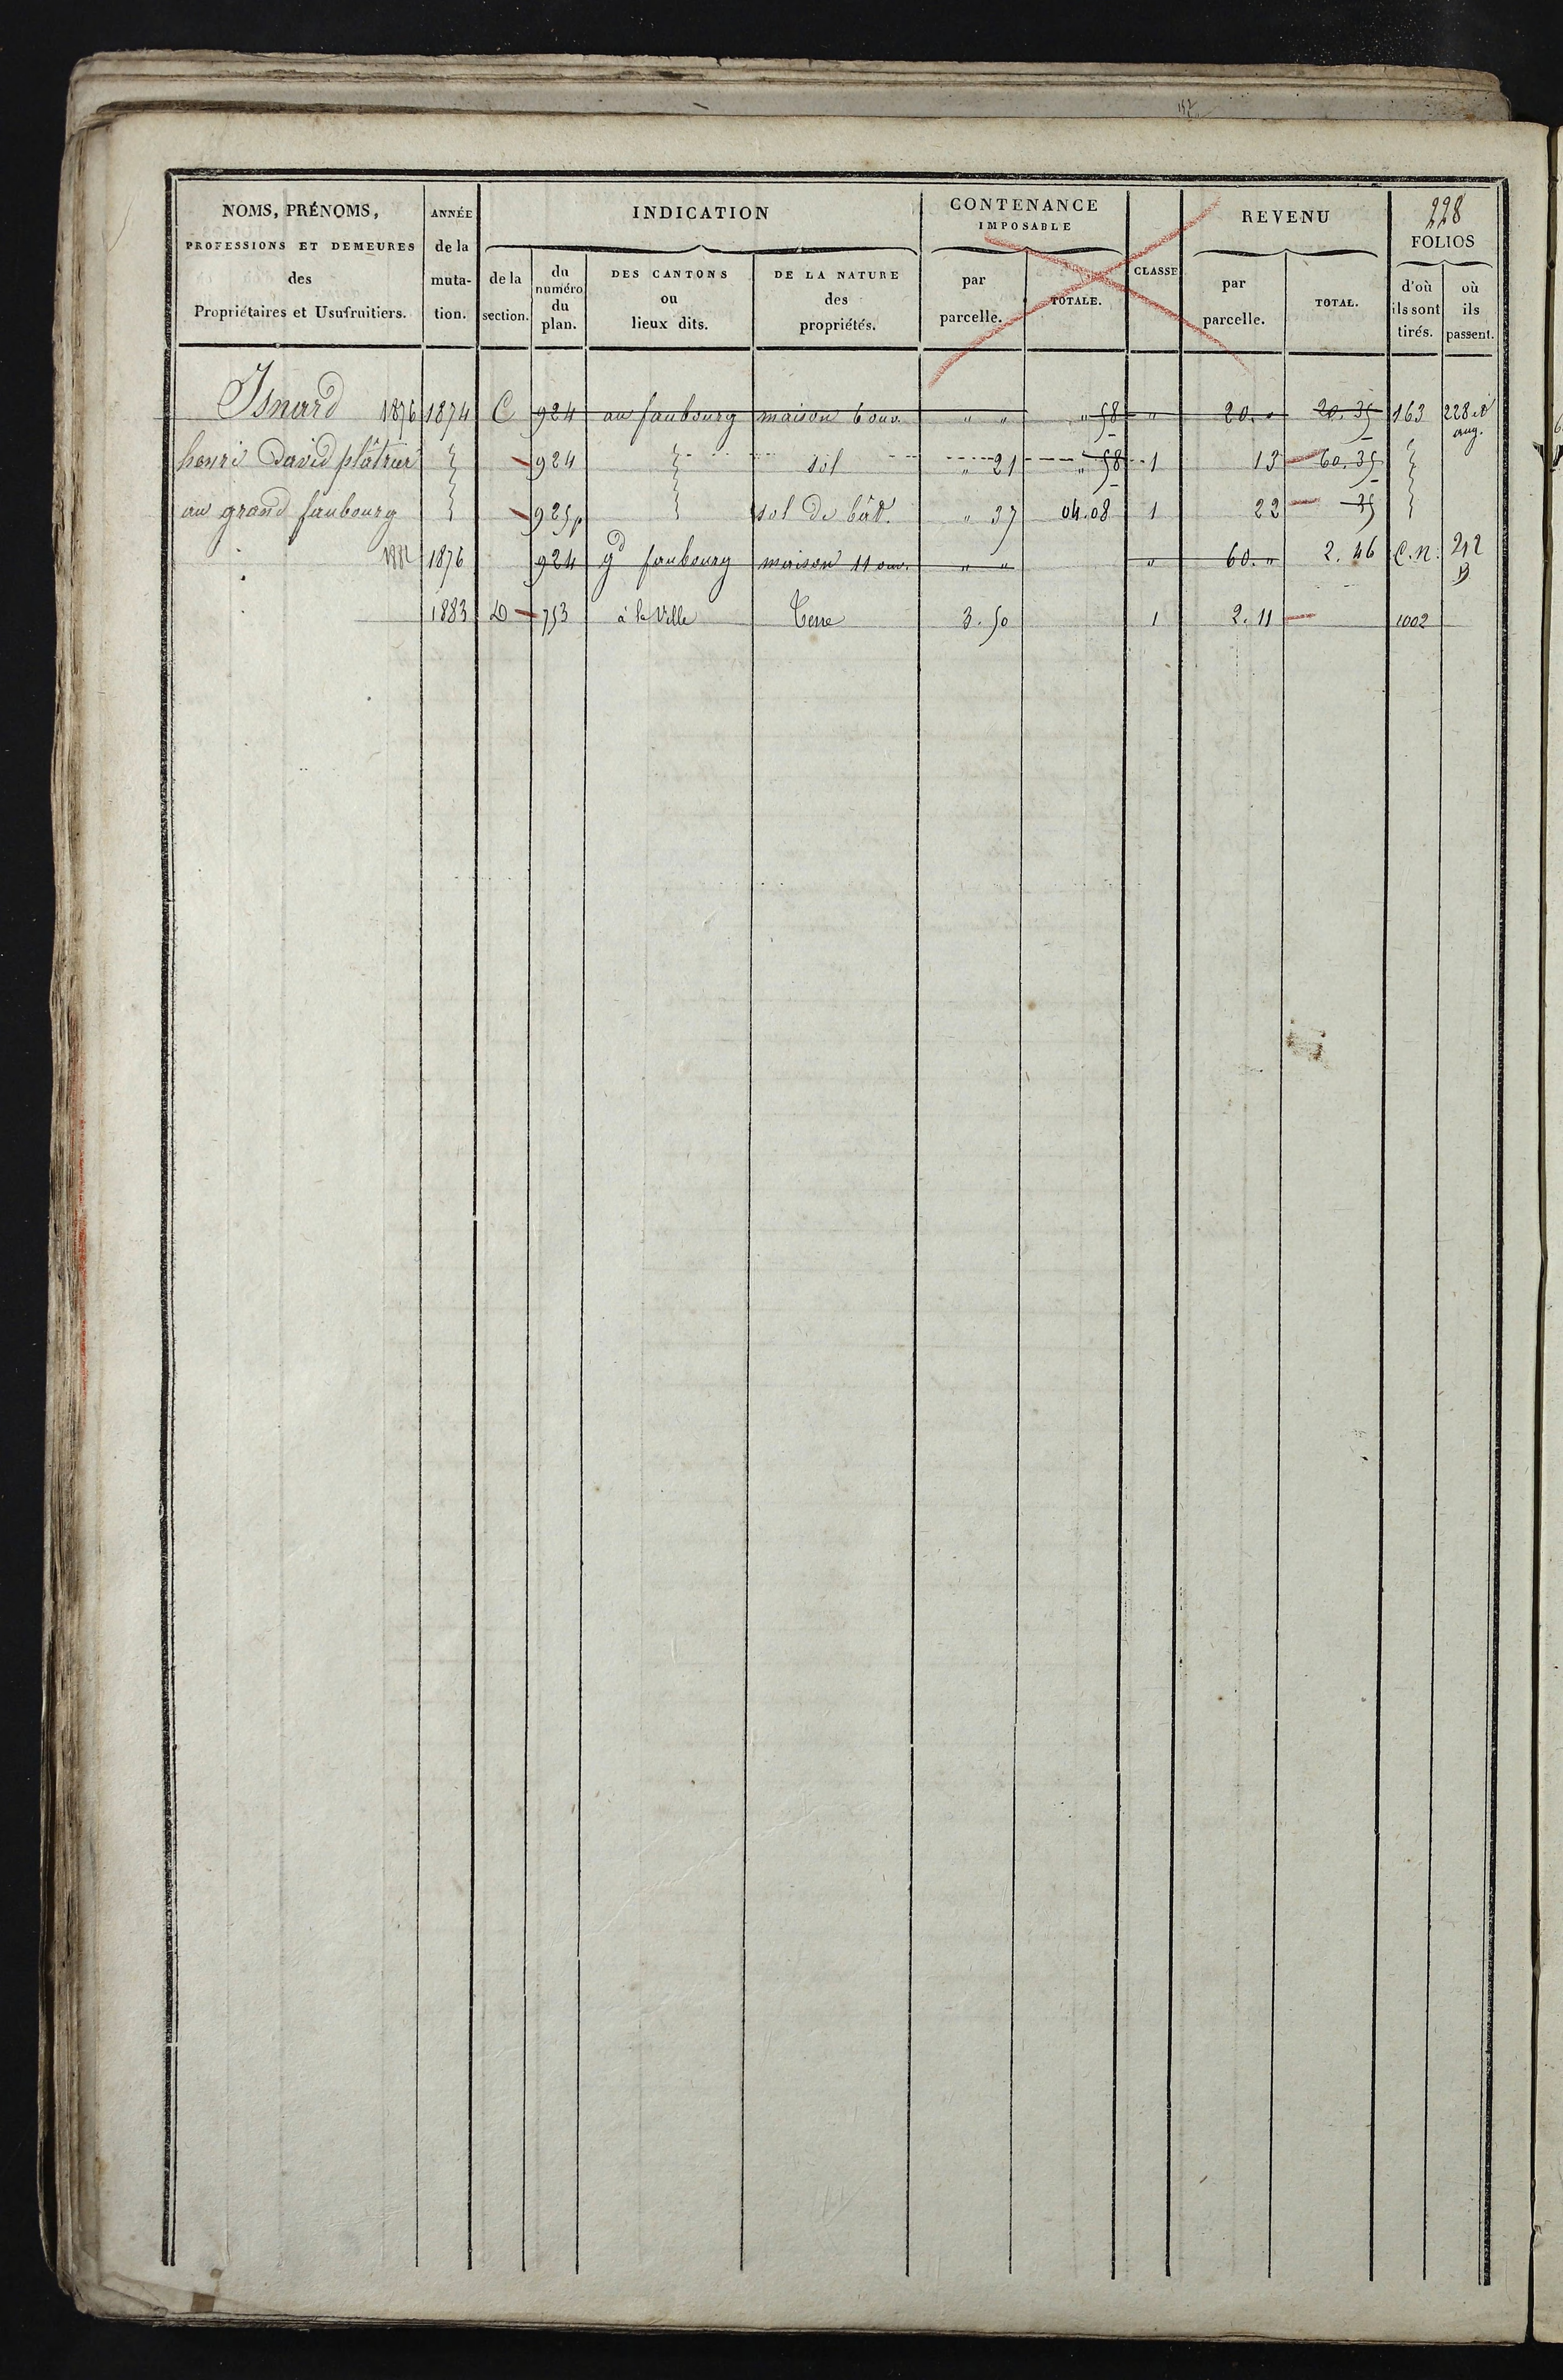 228
NOMS, PRÉNOMS, PROFESSIONS ET DEMEURES des Propriétaires et Usufruitiers. | ANNÉE de la muta-tion. | INDICATION | CONTENANCE IMPOSABLE | CLASSE | REVENU | FOLIOS
de la section. | du numéro du plan. | DES CANTONS ou lieux dits. | DE LA NATURE des propriétés. | par parcelle. | TOTALE. | par parcelle. | TOTAL. | d'où ils sont tirés. | où ils passent.
Isnard 1876 | 1874 | C | 924 | au faubourg | maison 6 ouv. | " " | " 58 | " | 20. " | 20. 35 | 163 | 228 et aug.
henri David plâtrier | " | 924 | " | sol | " 21 | " 58 | 1 | 13 | 60. 35 | "
au grand faubourg | " | 925p | " | sol de bât. | " 37 | 04.08 | 1 | 22 | 35 | "
1882 | 1876 | 924 | gd faubourg | maison 11 ouv. | " " | " | 60. " | 2. 46 | C.N. | 212 B
1883 | D | 753 | à la Ville | Terre | 3. 50 | 1 | 2. 11 | 1002